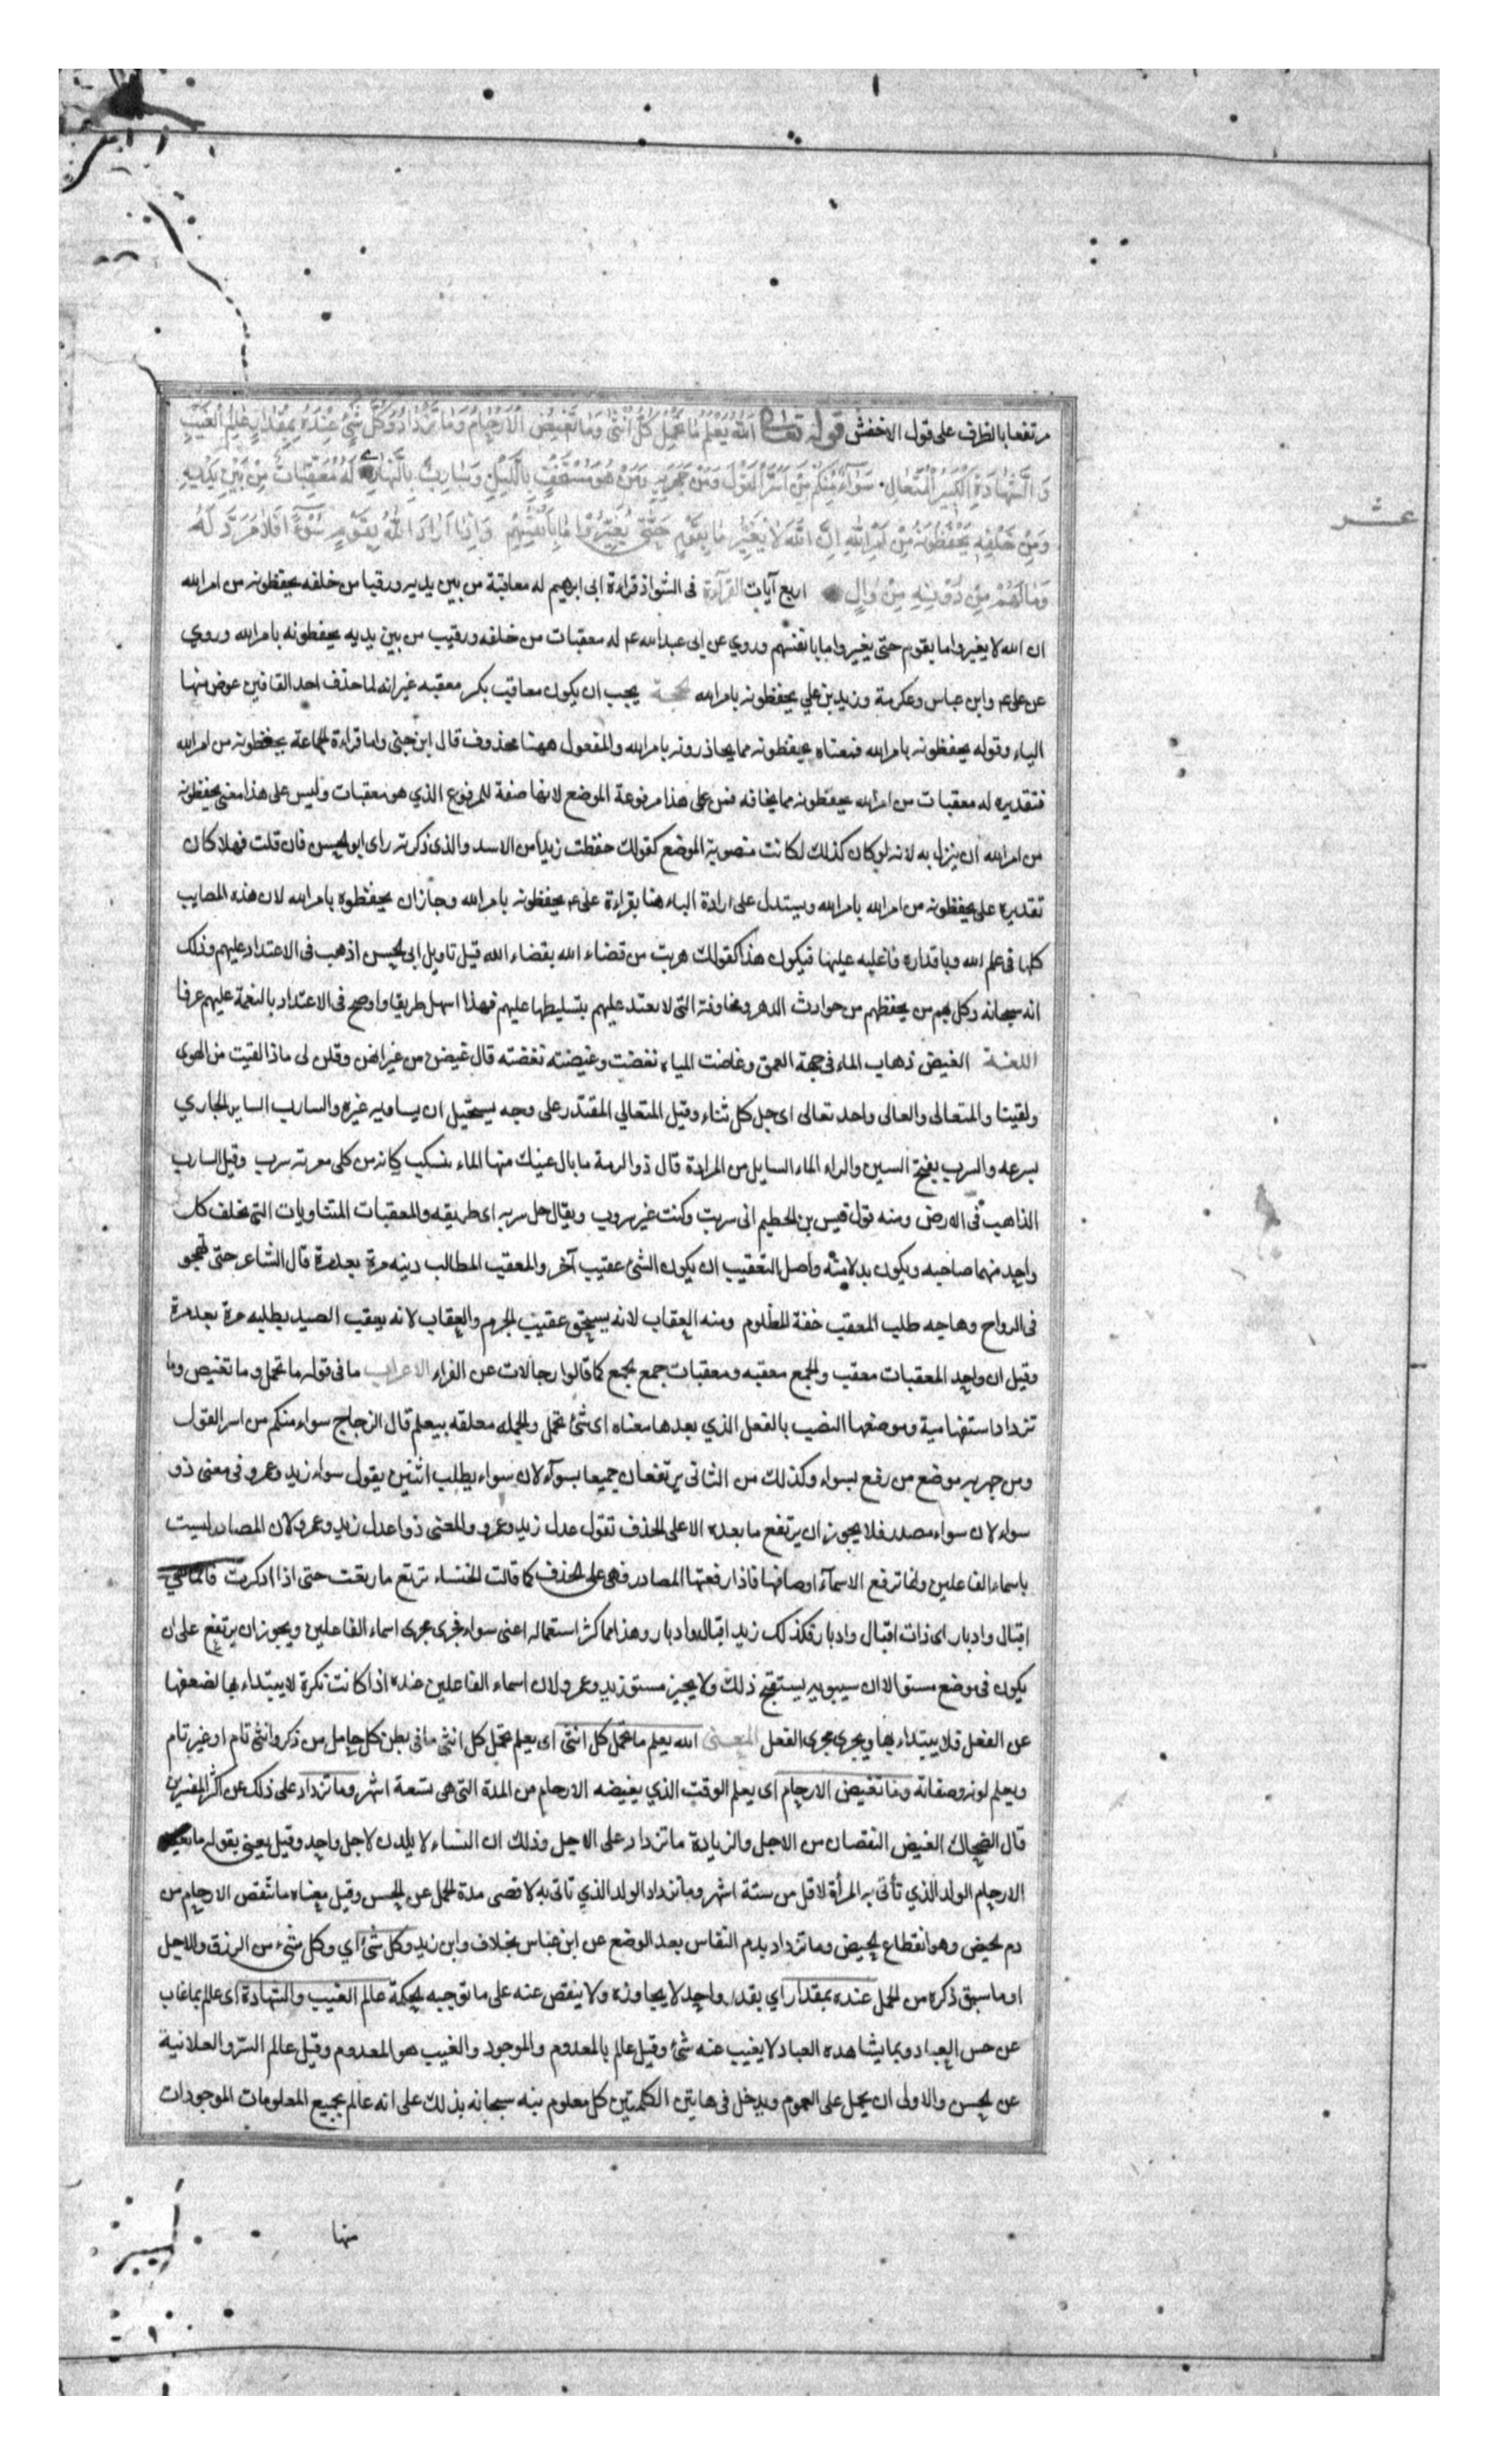 مرتفعا بالظرف على قول الاخفش قوله تعالى اَللّٰهُ يَعْلَمُ مَا تَحْمِلُ كُلُّ اُنْثٰى وَمَا تَغِيْضُ الْاَرْحَامُ وَمَا تَزْدَادُ وَكُلُّ شَيْءٍ عِنْدَهُ بِمِقْدَارٍ عَالِمُ الْغَيْبِ
وَالشَّهَادَةِ الْكَبِيْرُ الْمُتَعَالِ سَوَآءٌ مِنْكُمْ مَنْ اَسَرَّ الْقَوْلَ وَمَنْ جَهَرَ بِهِ وَمَنْ هُوَ مُسْتَخْفٍ بِاللَّيْلِ وَسَارِبٌ بِالنَّهَارِ لَهُ مُعَقِّبَاتٌ مِنْ بَيْنِ يَدَيْهِ
عشر
وَمِنْ خَلْفِهِ يَحْفَظُوْنَهُ مِنْ اَمْرِ اللّٰهِ اِنَّ اللّٰهَ لَا يُغَيِّرُ مَا بِقَوْمٍ حَتّٰى يُغَيِّرُوْا مَا بِاَنْفُسِهِمْ وَاِذَا اَرَادَ اللّٰهُ بِقَوْمٍ سُوْءًا فَلَا مَرَدَّ لَهُ
وَمَا لَهُمْ مِنْ دُوْنِهِ مِنْ وَالٍ اربع آيات القرآءة فى الشواذ قراءة ابى ابرهيم له معاقبة من بين يديه ورقيبا من خلفه يحفظونه من امر الله
ان الله لا يغيروا ما بقوم حتى يغيروا ما بانفسهم وروي عن ابى عبد الله ع له معقبات من خلفه ورقيب من بين يديه يحفظونه بامر الله وروي
عن على ع وابن عباس وعكرمة وزيد بن علي يحفظونه بامر الله الحجة يجب ان يكون معاقيب بكر معقبه غير انه لما حذف احد القافين عوض منها
الياء وقوله يحفظونه بامر الله فمعناه يحفظونه مما يحاذرونه بامر الله والمفعول ههنا محذوف قال ابن جنى واما قراءة الجماعة يحفظونه من امر الله
فتقديره له معقبات من امر الله يحفظونه مما يخافه فمن على هذا مرفوعة الموضع لانها صفة للمرفوع الذي هو معقبات وليس على هذا معنى يحفظونه
من امر الله ان ينزل به لانه لو كان كذلك لكانت منصوبة الموضع كقولك حفظت زيدا من الاسد والذى ذكرته راى ابو الحسن فان قلت فهلا كان
تقديره على يحفظونه من امر الله بامر الله ويستدل على ارادة الباء هنا بقراءة على ع يحفظونه بامر الله وجاز ان يحفظوه بامر الله لان هذه المصايب
كلها فى علم الله وباقداره فاعليه عليها فيكون هذا كقولك هربت من قضاء الله بقضاء الله قيل تاويل ابى الحسن اذهب فى الاعتداد عليهم وذلك
انه سبحانه وكل بهم من يحفظهم من حوادث الدهر ومخاوفه التى لا يعتد عليهم بتسليطها عليهم فهذا اسهل طريقا واوضح فى الاعتداد بالنعمة عليهم عرفا
اللغة الغيض ذهاب الماء فى جهة العمق وغاضت المياه نغضت وغيضته نغضته قال غيضن من عبراتهن وقلن لى ماذا لقيت من الهوى
ولقينا والمتعالى والعالى واحد تعالى اى جل كل ثناء وقيل المتعالي المقتدر على وجه يستحيل ان يساويه غيره والسارب الساير الجاري
بسرعه والسرب بفتح السين والراء الماء السايل من المزادة قال ذو الرمة ما بال عينك منها الماء ينسكب كانه من كلى مفرية سرب وقيل السارب
الذاهب فى الارض ومنه قول قيس بن الخطيم انى سربت وكنت غير سروب ويقال خل سربه اى طريقه والمعقبات المتناوبات التى يخلف كل
واحد منهما صاحبه ويكون بدلا منه واصل التعقيب ان يكون الشئ عقيب آخر والمعقب المطالب دينه مرة بعد مرة قال الشاعر حتى تهجر
فى الرواح وهاجه طلب المعقب حقة المظلوم ومنه العقاب لانه يستحق عقيب الجرم والعقاب لانه يعقب الصيد يطلبه مرة بعد مرة
وقيل ان واحد المعقبات معقب والجمع معقبه ومعقبات جمع جمع كما قالوا رجالات عن الفراء الاعراب ما فى قوله ما تحمل وما تغيض وما
تزداد استفهامية وموضعها النصب بالفعل الذي بعدها معناه اى شئ تحمل والجمله معلقه بيعلم قال الزجاج سواء منكم من اسر القول
ومن جهر به موضع من رفع بسواء وكذلك من الثانى يرتفعان جميعا بسوآء لان سواء يطلب اثنين يقول سواء زيد وعمرو فى معنى ذو
سواء لان سواء مصدر فلا يجوز ان يرتفع ما بعده الا على الحذف تقول عدل زيد وعمرو والمعنى ذوا عدل زيد وعمرو لان المصادر ليست
باسماء الفاعلين وانما ترفع الاسمآء اوصافها فاذا رفعتها المصادر فهى على الحذف كما قالت الخنساء ترتع ما رتعت حتى اذا ادكرت فانما هي
اقبال وادبار اى ذات اقبال وادبار فكذلك زيد اقبال وادبار وهذا مما كثر استعماله اعنى سواء فجرى مجرى اسماء الفاعلين ويجوز ان يرتفع على ان
يكون فى موضع مستو الا ان سيبويه يستقبح ذلك ولا يجيز مستو زيد وعمرو لان اسماء الفاعلين عنده اذا كانت نكرة لا يبتداء بها لضعفها
عن الفعل فلا يبتداء بها ويجرى مجرى الفعل المعنى الله يعلم ما تحمل كل انثى اى يعلم تحمل كل انثى ما فى بطن كل حامل من ذكر وانثى تام او غير تام
ويعلم لونه وصفاته وما تغيض الارحام اى يعلم الوقت الذي يغيضه الارحام من المدة التى هى تسعة اشهر وما تزداد على ذلك عن اكثر المفسرين
قال الضحاك الغيض النقصان من الاجل والزيادة ما تزداد على الاجل وذلك ان النساء لا يلدن لاجل واحد وقيل يعنى بقوله ما تغيض
الارحام الولد الذي تأتى به المرأة لاقل من ستة اشهر وما تزداد الولد الذي تاتى به لاقصى مدة الحمل عن الحسن وقيل معناه ما تنقص الارحام من
دم الحيض وهو انقطاع الحيض وما تزداد بدم النفاس بعد الوضع عن ابن عباس بخلاف وابن زيد وكل شئ اي وكل شئ من الرزق والاجل
او ما سبق ذكره من الحمل عنده بمقدار اي بقدر واحد لا يجاوزه ولا ينقص عنه على ما توجبه الحكمة عالم الغيب والشهادة اى عالم بما غاب
عن حس العباد وبما يشاهده العباد لا يغيب عنه شئ وقيل عالم بالمعدوم والموجود والغيب هو المعدوم وقيل عالم السرّ والعلانية
عن الحسن والاولى ان يحمل على العموم ويدخل فى هاتين الكلمتين كل معلوم نبه سبحانه بذلك على انه عالم بجميع المعلومات الموجودات
منها